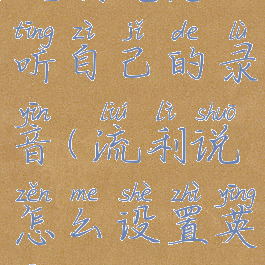 tīng zì jǐ de lù
听自己的录
yīn liú lì shuō
音(流利说
zěn me shè zhì yīng
怎么设置英